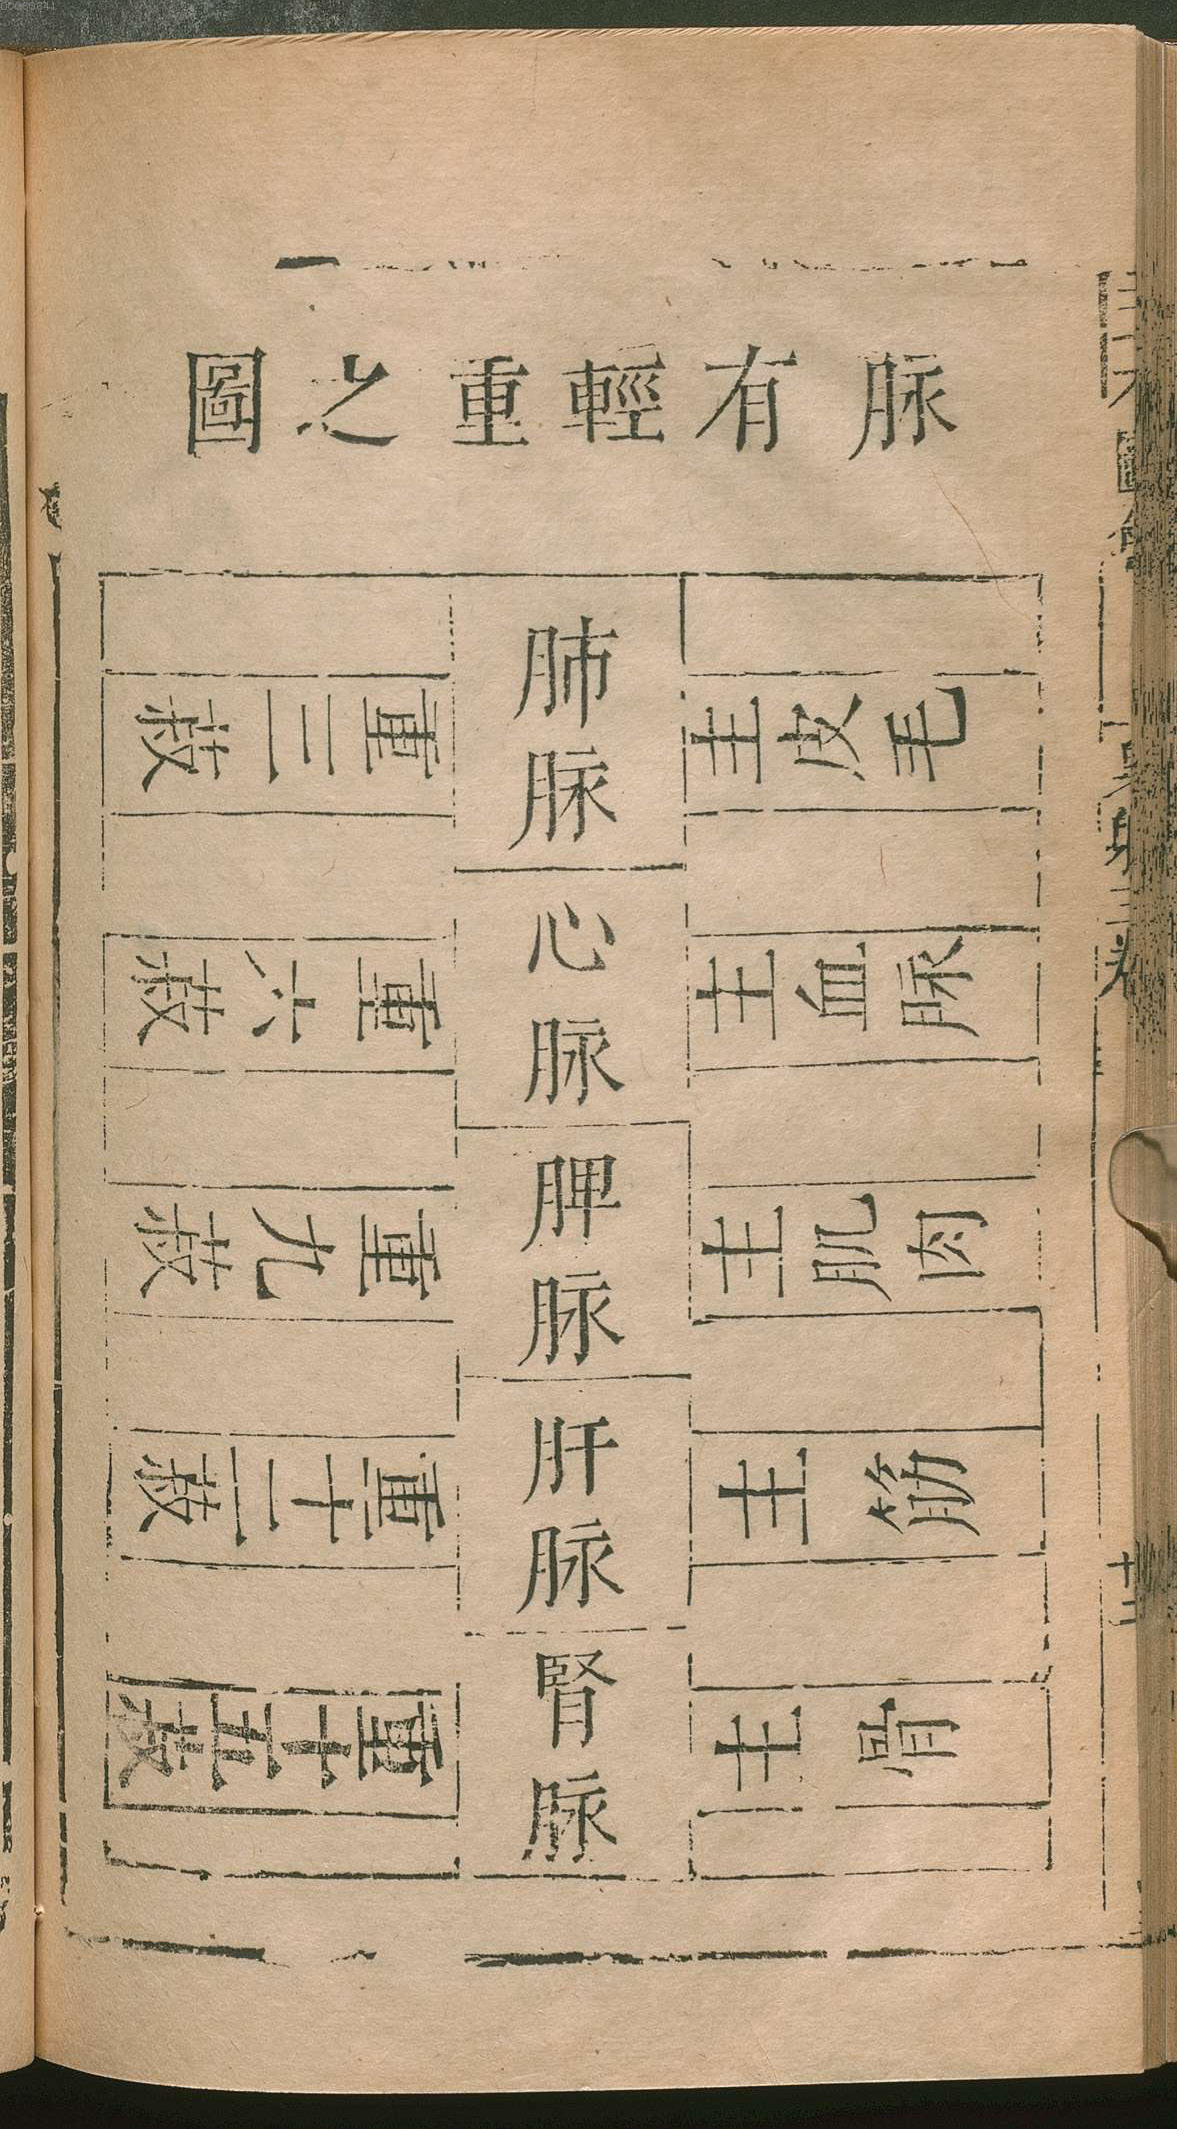 脉有輕重之圖
肺脉
主皮毛
重三菽
心脉
主血脉
重六菽
脾脉
主肌肉
重九菽
肝脉
主筋
重十二菽
腎脉
主骨
重十五菽
三才圖會